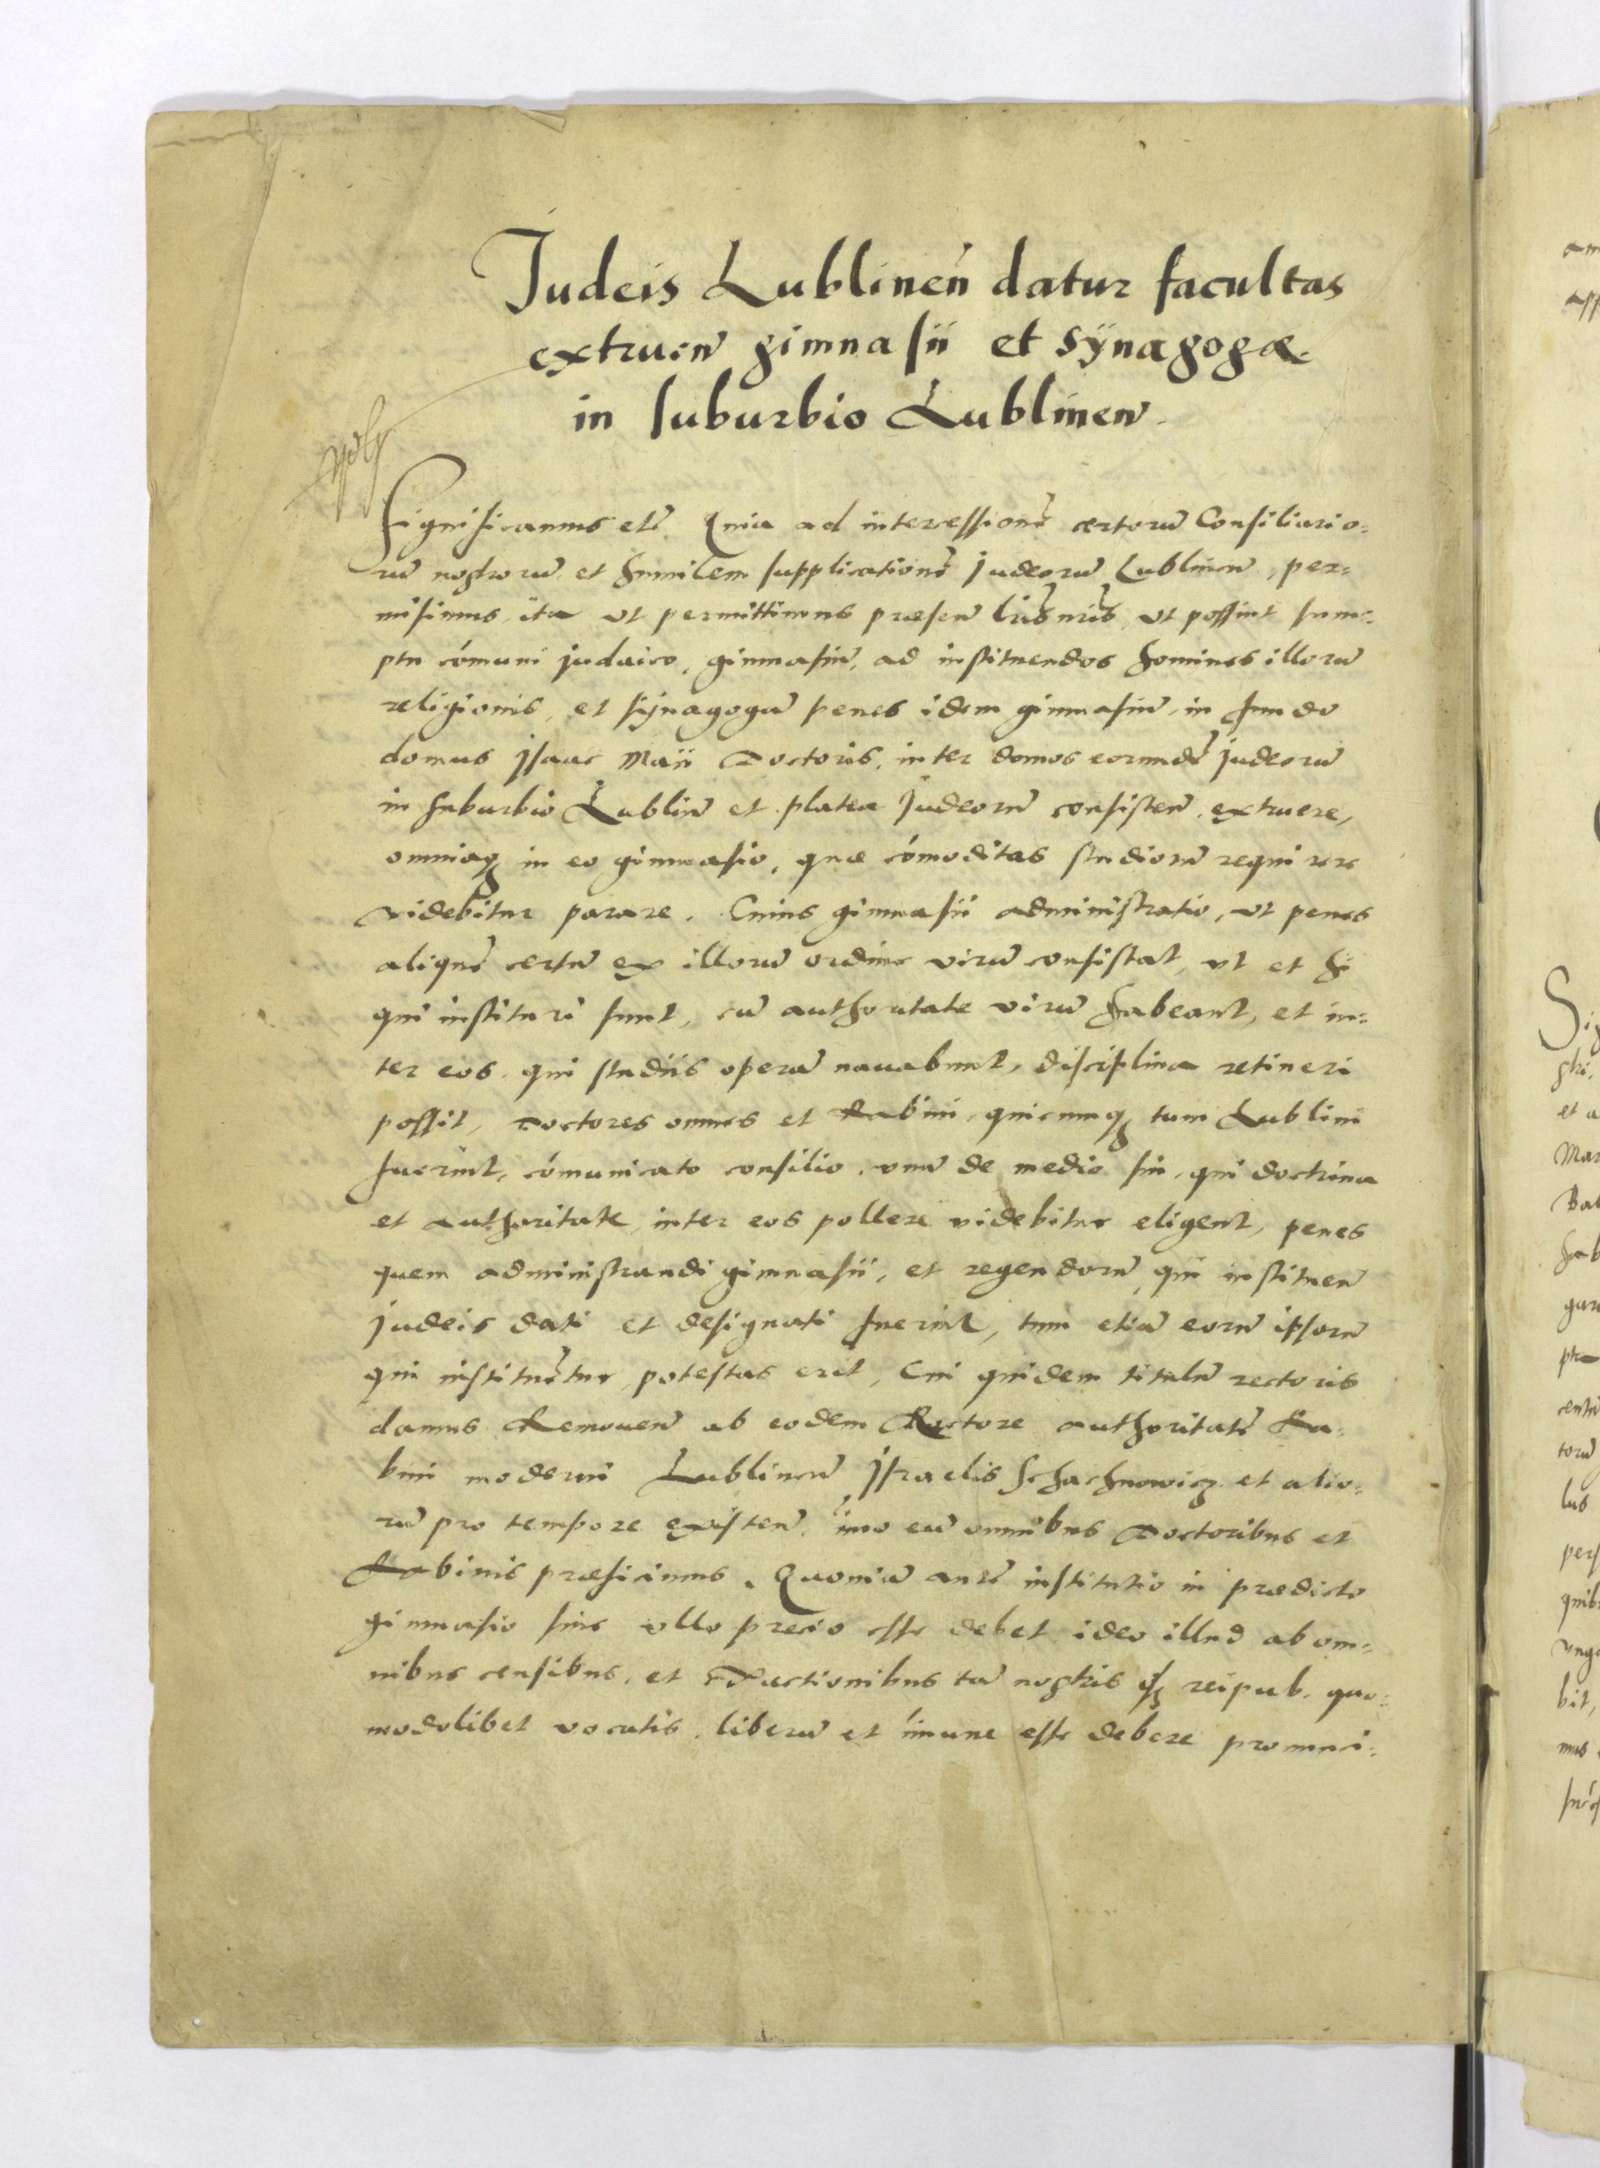 Judeis Lublineñ datur facultas
extruen̄ gimnasii et Sÿnagogæ
in suburbio Lublinen̄.
Significamus etc̄. Quia ad intercessionē certorū Consiliario=
rū nostrorū et humilem supplicationē Judeorū Lublinen̄, per=
misimus ita ut permittimus præsen̄ lrīs nrīs, ut possint sum=
ptu cōmuni judaico, gimnasiū, ad instituendos homines illorū
religionis, et sÿnagogā penes idem gimnasiū, in fundo
domus Jsaac Maii Doctoris, inter domos eorundē judeorū
in suburbio Lublin̄ et platea Judeorū consisten̄. extruere,
omniaq; in eo gimnasio, quæ cōmoditas studiorū requirere
videbitur parare. Cuius gimnasii administratio, ut penes
aliquē certū ex illorū ordine virū consistat, ut et hi
qui instituti sunt, cū authoritate virū habeant, et in=
ter eos, qui studiis operā navabunt, disciplina retineri
possit, Doctores omnes et Rabini quicunq; tum Lublini
fuerint, cōmunicato consilio, unū de medio sui, qui doctrina
et authoritate inter eos pollere videbitur eligent, penes
quem administrandi gimnasii, et regendorū, qui instituen̄
judeis dati et designati fuerint, tum etiā eorū ipsorū
qui instituētur potestas erit, Cui quidem titulū rectoris
damus Remouen̄ ab eodem Rectore authoritatē Ra=
bini moderni Lublinen̄ Jsraelis Schachnowicz et alio=
rū pro tempore existen̄. imo eū omnibus Doctoribus et
Rabinis præficimus. Quoniā autē institutio in prædicto
gimnasio sine ullo precio esse debet ideo illud ab om=
nibus censibus, et exactionibus tā nostris q̄ reipub. quo=
modolibet vocatis, liberū et īmune esse debere pronunci=